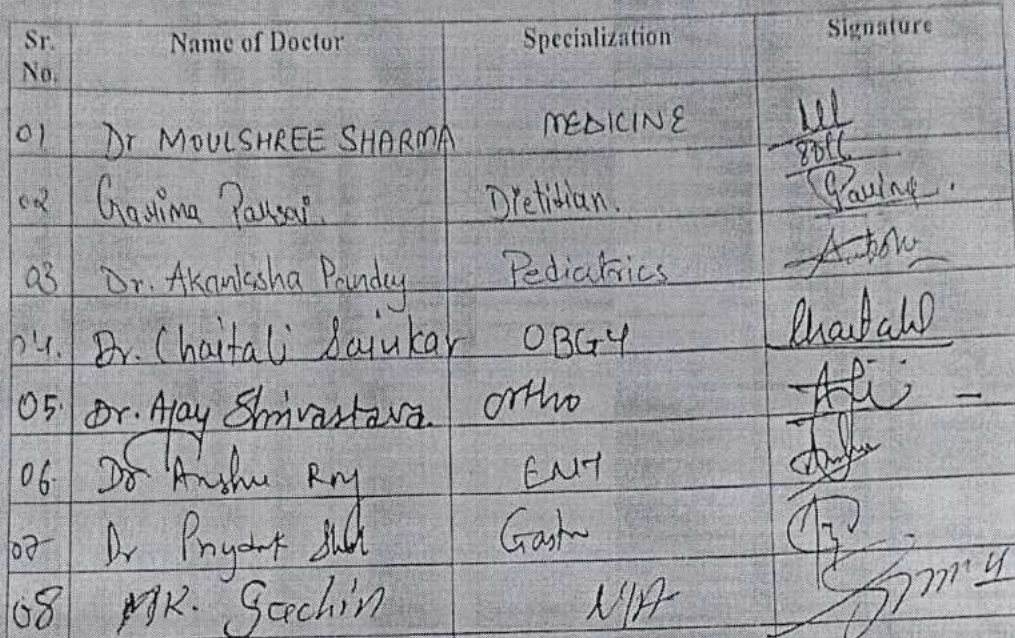 Sr. No. Name of Doctor Specialization Signature
01 Dr MOULSHREE SHARMA MEDICINE
02 Garima Dietitian.
03 Dr. Akanksha Pandey Pediatrics
04. Dr. Chaitali Sajukar OBGY
05. Dr. Ajay Shrivastava. Ortho
06. Dr Anshu Roy ENT
07 Dr Gastro
08 MR. Sachin N/A